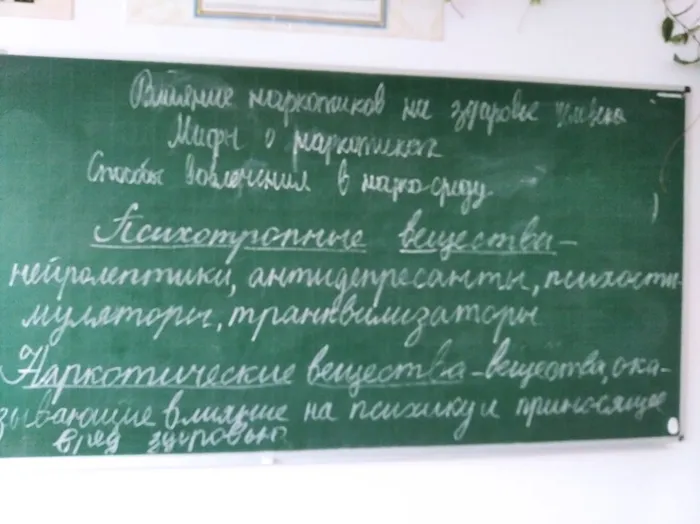 Влияние наркотиков на здоровье человека
Мифы о наркотиках
Способы вовлечения в нарко-среду.
Психотропные вещества -
нейролептики, антидепресанты, психости-
муляторы, транквилизаторы
Наркотические вещества - вещества, ока-
зывающие влияние на психику и приносящее
вред здоровью